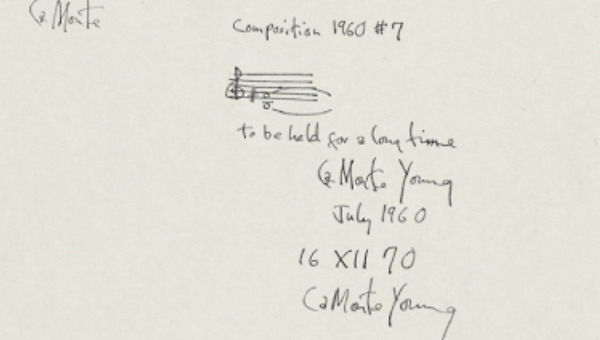 La Monte
Composition 1960 #7
to be held for a long time
La Monte Young
July 1960
16 XII 70
La Monte Young